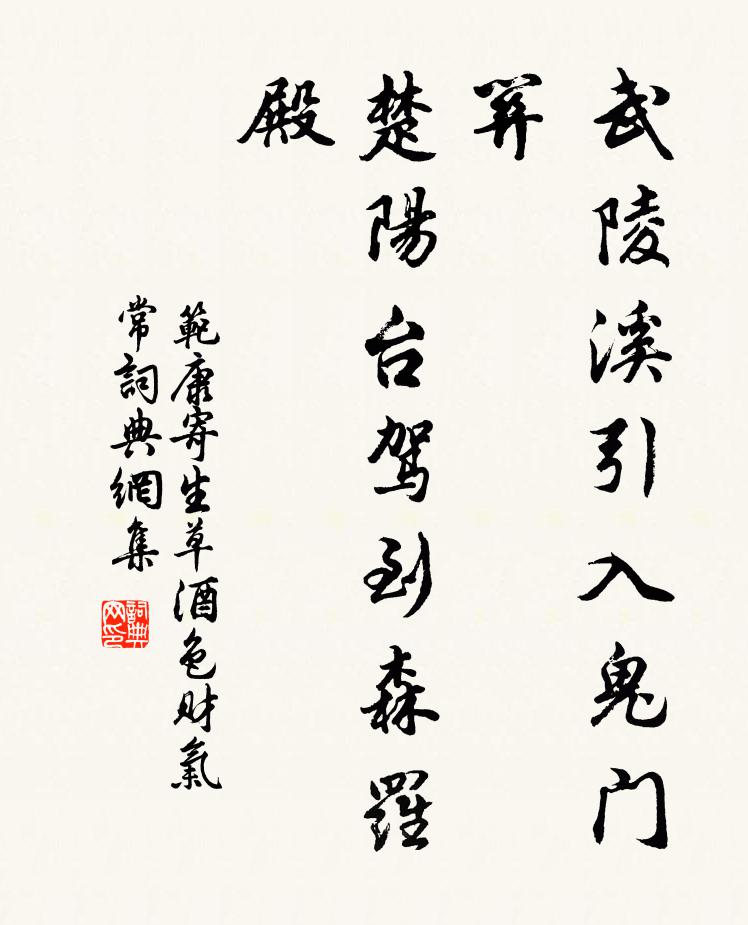 武陵溪引入鬼門
關
楚陽台駕到森羅
殿
範康寄生草酒色財氣
常詞典網集
詞典
网印